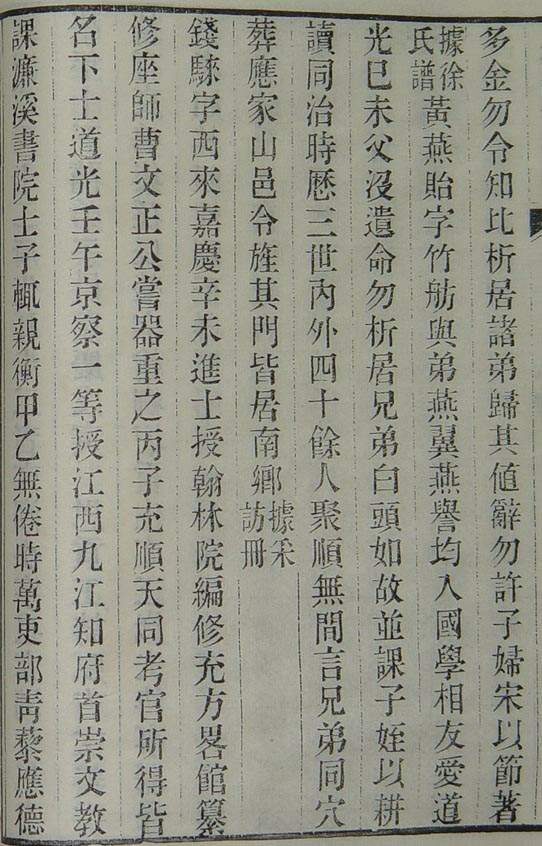 多金勿令知比析居諸弟歸其値辭勿許子婦宋以節著
據徐氏譜黃燕貽字竹舫與弟燕翼燕譽均入國學相友愛道
光巳未父沒遺命勿析居兄弟白頭如故並課子姪以耕
讀同治時歷三世內外四十餘人聚順無間言兄弟同穴
葬應家山邑令旌其門皆居南鄉據采訪冊
錢騋字西來嘉慶辛未進士授翰林院編修充方畧館纂
修座師曹文正公嘗器重之丙子充順天同考官所得皆
名下士道光壬午京察一等授江西九江知府首崇文教
課濂溪書院士子輒親衡甲乙無倦時萬吏部靑藜應德